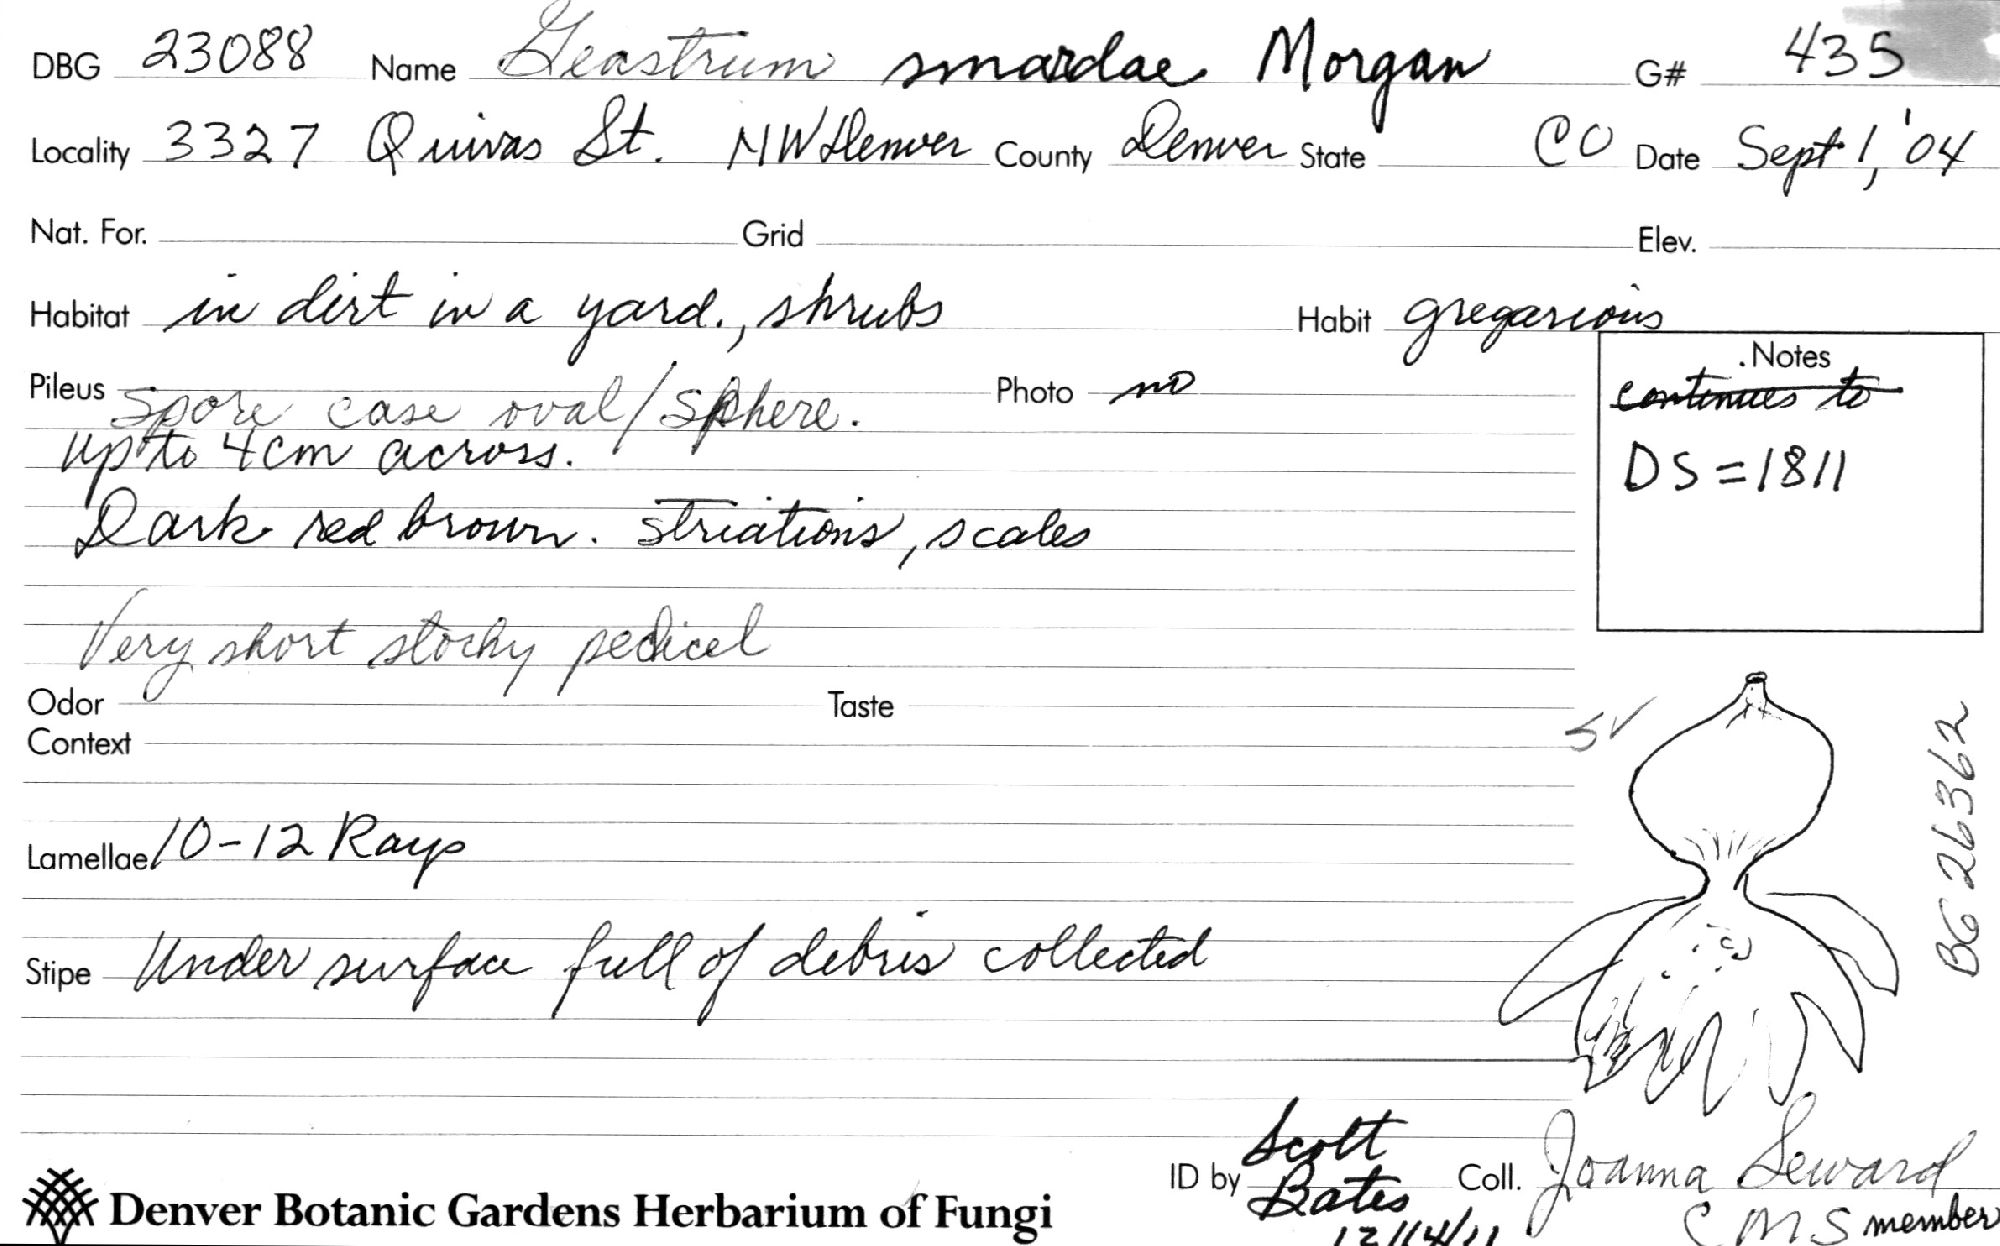 DBG 23088 Name Geastrum smardae Morgan G# 435
Locality 3327 Quivas St. NW Denver County Denver State CO Date Sept 1, '04
Nat. For. Grid Elev.
Habitat in dirt in a yard., shrubs Habit gregarious
Pileus Spore case oval/sphere. Photo no
up to 4cm across.
Dark red brown. striations, scales
Very short stocky pedicel
.Notes
continues to
DS = 1811
Odor Taste
Context
SV
BG 26362
Lamellae 10-12 Rays
Stipe Under surface full of debris collected
ID by Scott Bates 12/14/11
Coll. Joanna Seward
CMS member
Denver Botanic Gardens Herbarium of Fungi